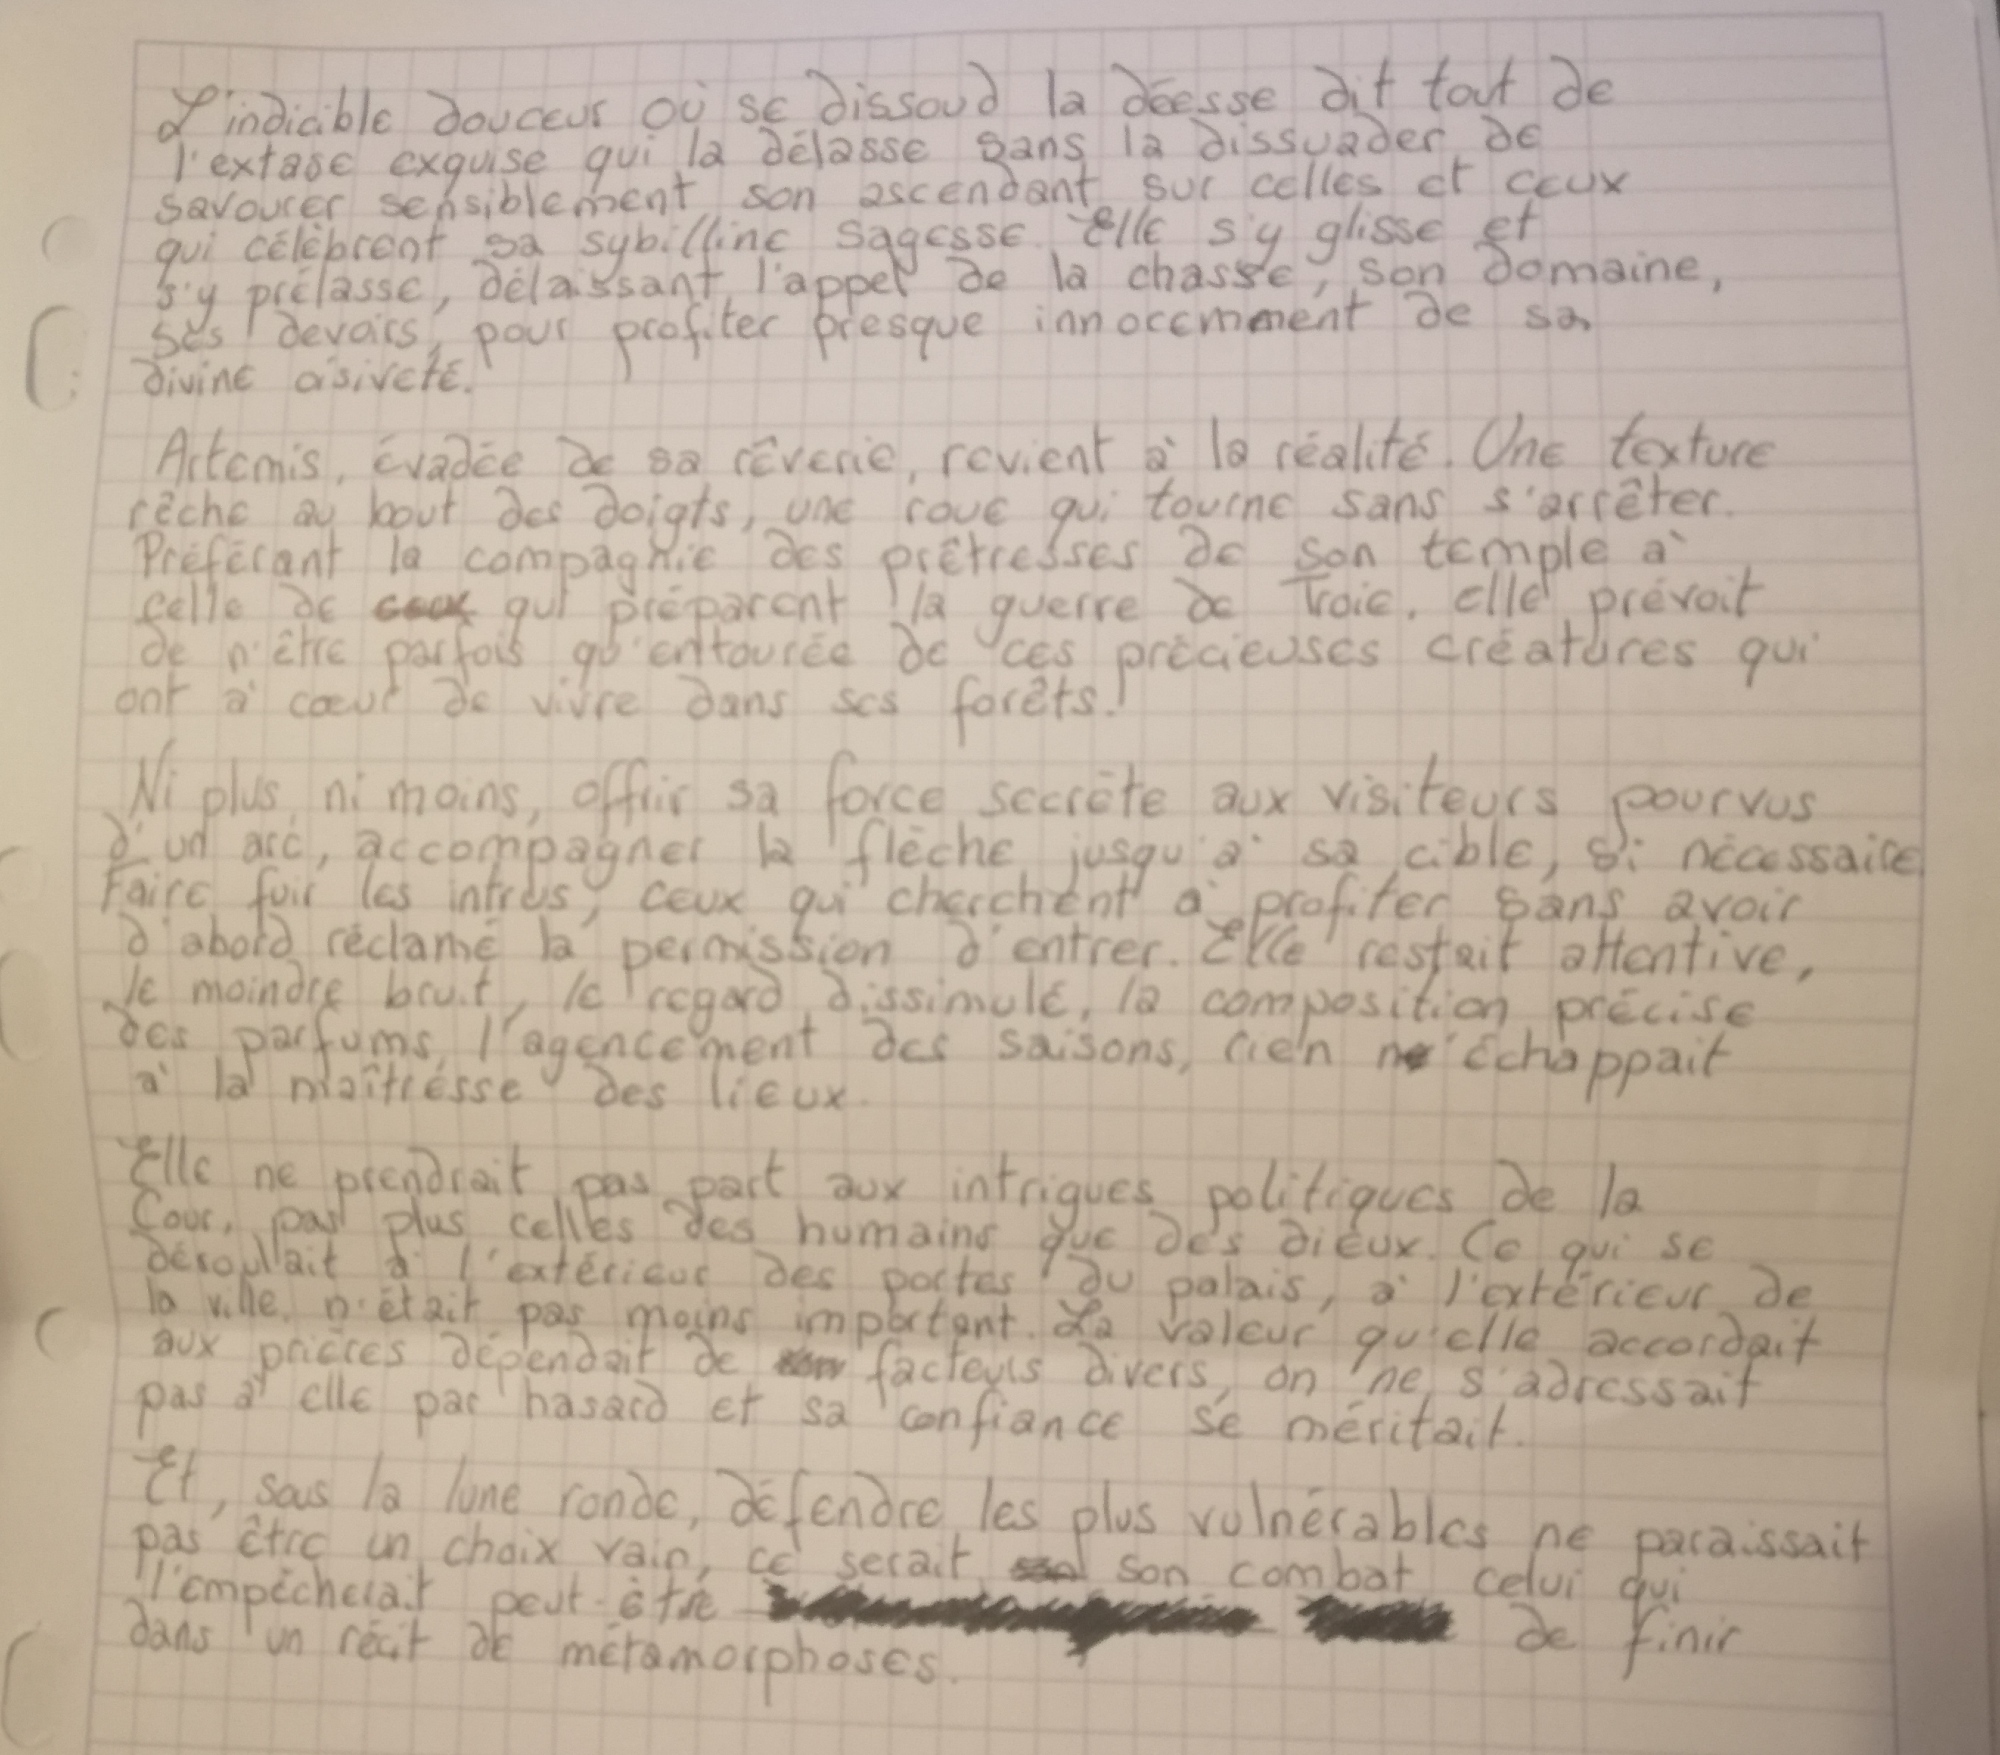 L'indicible douceur où se dissoud la déesse dit tout de
l'extase exquise qui la délasse sans la dissuader de
savourer sensiblement son ascendant sur celles et ceux
qui célèbrent sa sybilline sagesse. Elle s'y glisse et
s'y prélasse, délaissant l'appel de la chasse, son domaine,
ses devoirs, pour profiter presque innocemment de sa
divine oisiveté.
Artemis, évadée de sa rêverie, revient à la réalité. Une texture
rêche au bout des doigts, une roue qui tourne sans s'arrêter.
Préférant la compagnie des prêtresses de son temple à
celle de ceux qui préparent la guerre de Troie, elle prévoit
de n'être parfois qu'entourée de ces précieuses créatures qui
ont à cœur de vivre dans ses forêts.
Ni plus, ni moins, offrir sa force secrète aux visiteurs pourvus
d'un arc, accompagner la flèche jusqu'à sa cible, si nécessaire
Faire fuir les intrus, ceux qui cherchent à profiter sans avoir
d'abord réclamé la permission d'entrer. Elle restait attentive,
le moindre bruit, le regard dissimulé, la composition précise
des parfums, l'agencement des saisons, rien n'échappait
à la maîtresse des lieux.
Elle ne prendrait pas part aux intrigues politiques de la
Cour, pas plus celles des humains que des dieux. Ce qui se
déroulait à l'extérieur des portes du palais, à l'extérieur de
la ville n'était pas moins important. La valeur qu'elle accordait
aux prières dépendait de facteurs divers, on ne s'adressait
pas à elle par hasard et sa confiance se méritait.
Et, sous la lune ronde, défendre les plus vulnérables ne paraissait
pas être un choix vain, ce serait son combat celui qui
l'empêcherait peut-être de finir
dans un récit de métamorphoses.